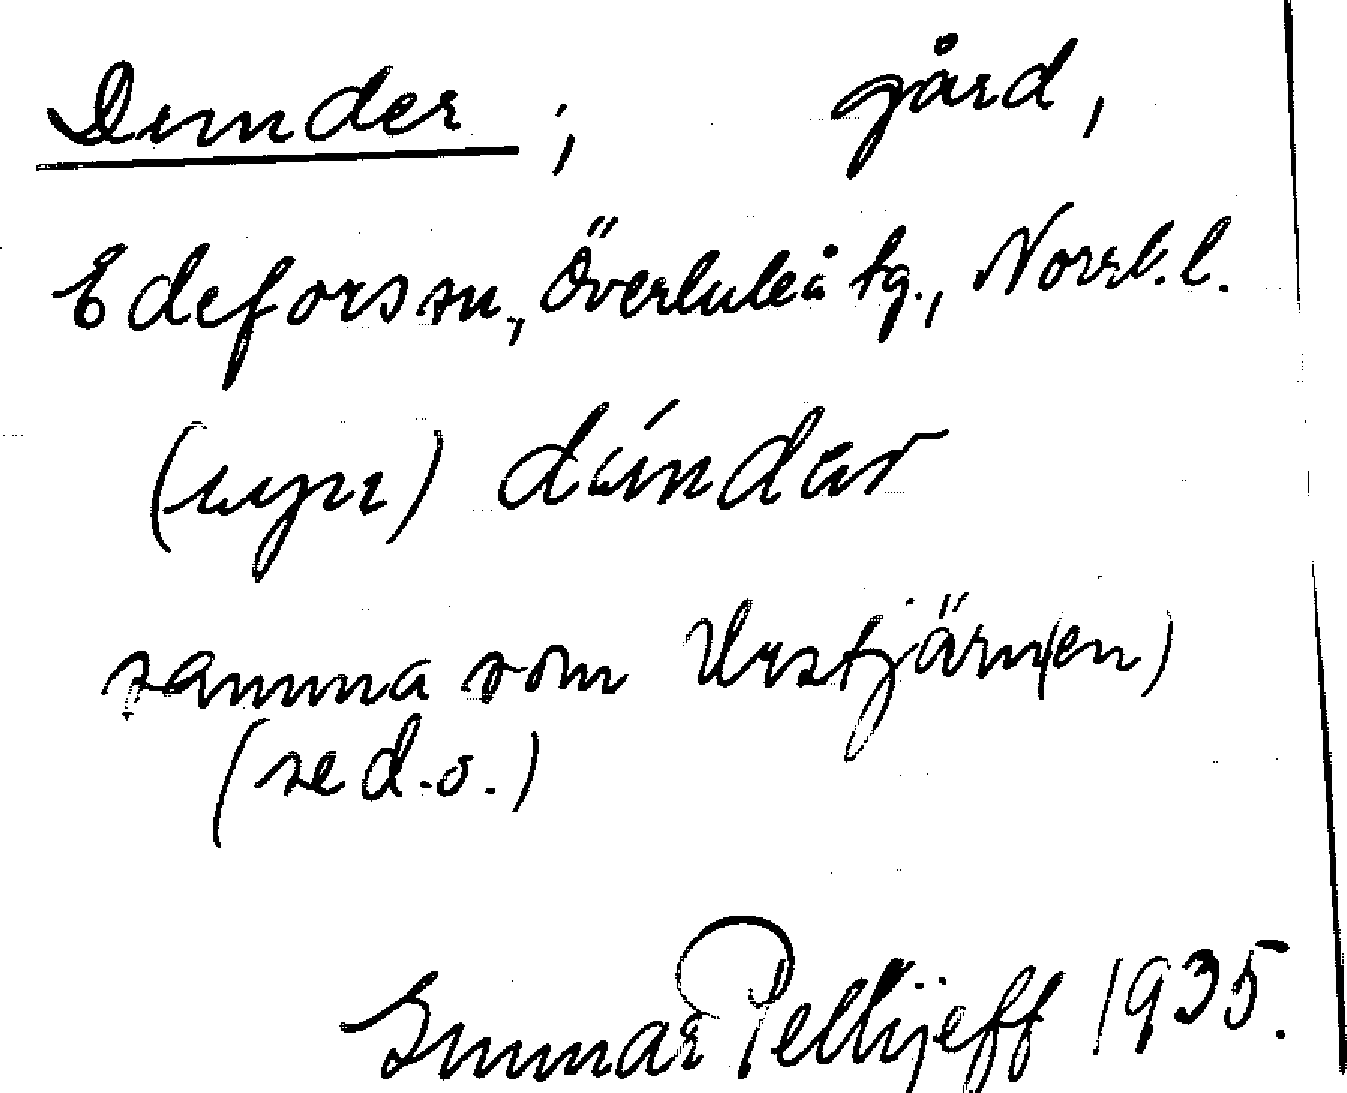 Dunder ; gård,
Edefors sn., Överluleå tg., Norrb. l.
(uyn) dúndar
samma som Urstjärn(en)
(se d.o.)
Gunnar Pellijeff 1935.